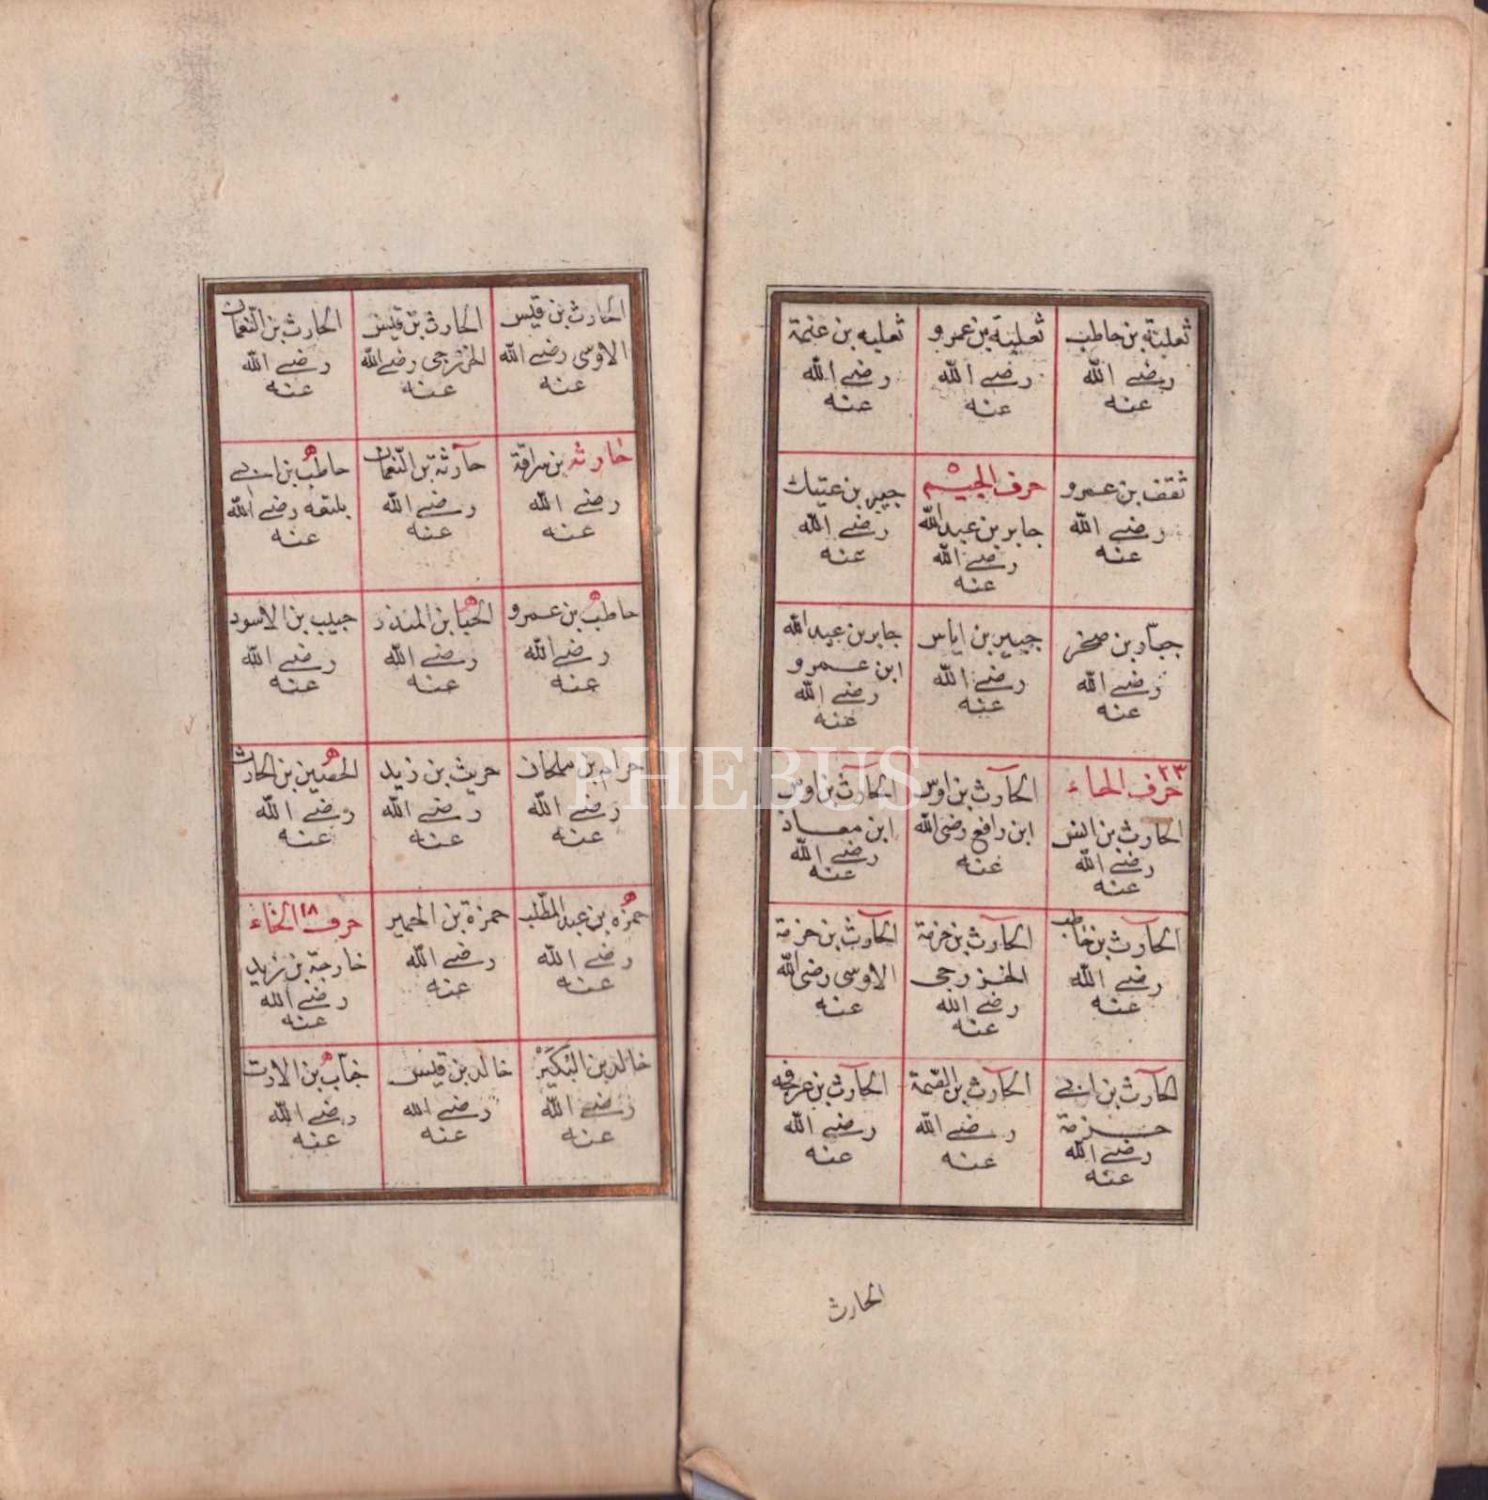 ثعلبة بن حاطب
رضي الله
عنه
ثعلبة بن عمرو
رضي الله
عنه
ثعلبه بن عنمة
رضي الله
عنه
ثقف بن عمرو
رضي الله
عنه
حرف الجيم ٥
جابر بن عبدالله
رضي الله
عنه
جبر بن عتيك
رضي الله
عنه
جبار بن صخر
رضي الله
عنه
جبير بن اياس
رضي الله
عنه
جابر بن عبدالله
ابن عمرو
رضي الله
عنه
حرف الحاء ٢٣
الحارث بن انس
رضي الله
عنه
الحارث بن اوس
ابن رافع رضي الله
عنه
الحارث بن اوس
ابن معاذ
رضي الله
عنه
الحارث بن حاطب
رضي الله
عنه
الحارث بن خزمة
الخزرجى
رضي الله
عنه
الحارث بن خزمة
الاوسى رضي الله
عنه
الحارث بن ابي
خزمة
رضي الله
عنه
الحارث بن الصمة
رضي الله
عنه
الحارث بن عرفجه
رضي الله
عنه
الحارث
الحارث بن قيس
الاوسى رضي الله
عنه
الحارث بن قيس
الخزرجى رضي الله
عنه
الحارث بن النعمان
رضي الله
عنه
حارثه بن سراقة
رضي الله
عنه
حارثة بن النعمان
رضي الله
عنه
حاطب بن ابي
بلتعه رضي الله
عنه
حاطب بن عمرو
رضي الله
عنه
الحباب بن المنذر
رضي الله
عنه
حبيب بن الاسود
رضي الله
عنه
حرام بن ملحان
رضي الله
عنه
حريث بن زيد
رضي الله
عنه
الحصين بن الحارث
رضي الله
عنه
حمزه بن عبد المطلب
رضي الله
عنه
حمزة بن الحمير
رضي الله
عنه
حرف الخاء ١٨
خارجة بن زيد
رضي الله
عنه
خالد بن البكير
رضي الله
عنه
خالد بن قيس
رضي الله
عنه
خباب بن الارت
رضي الله
عنه
PHEBUS